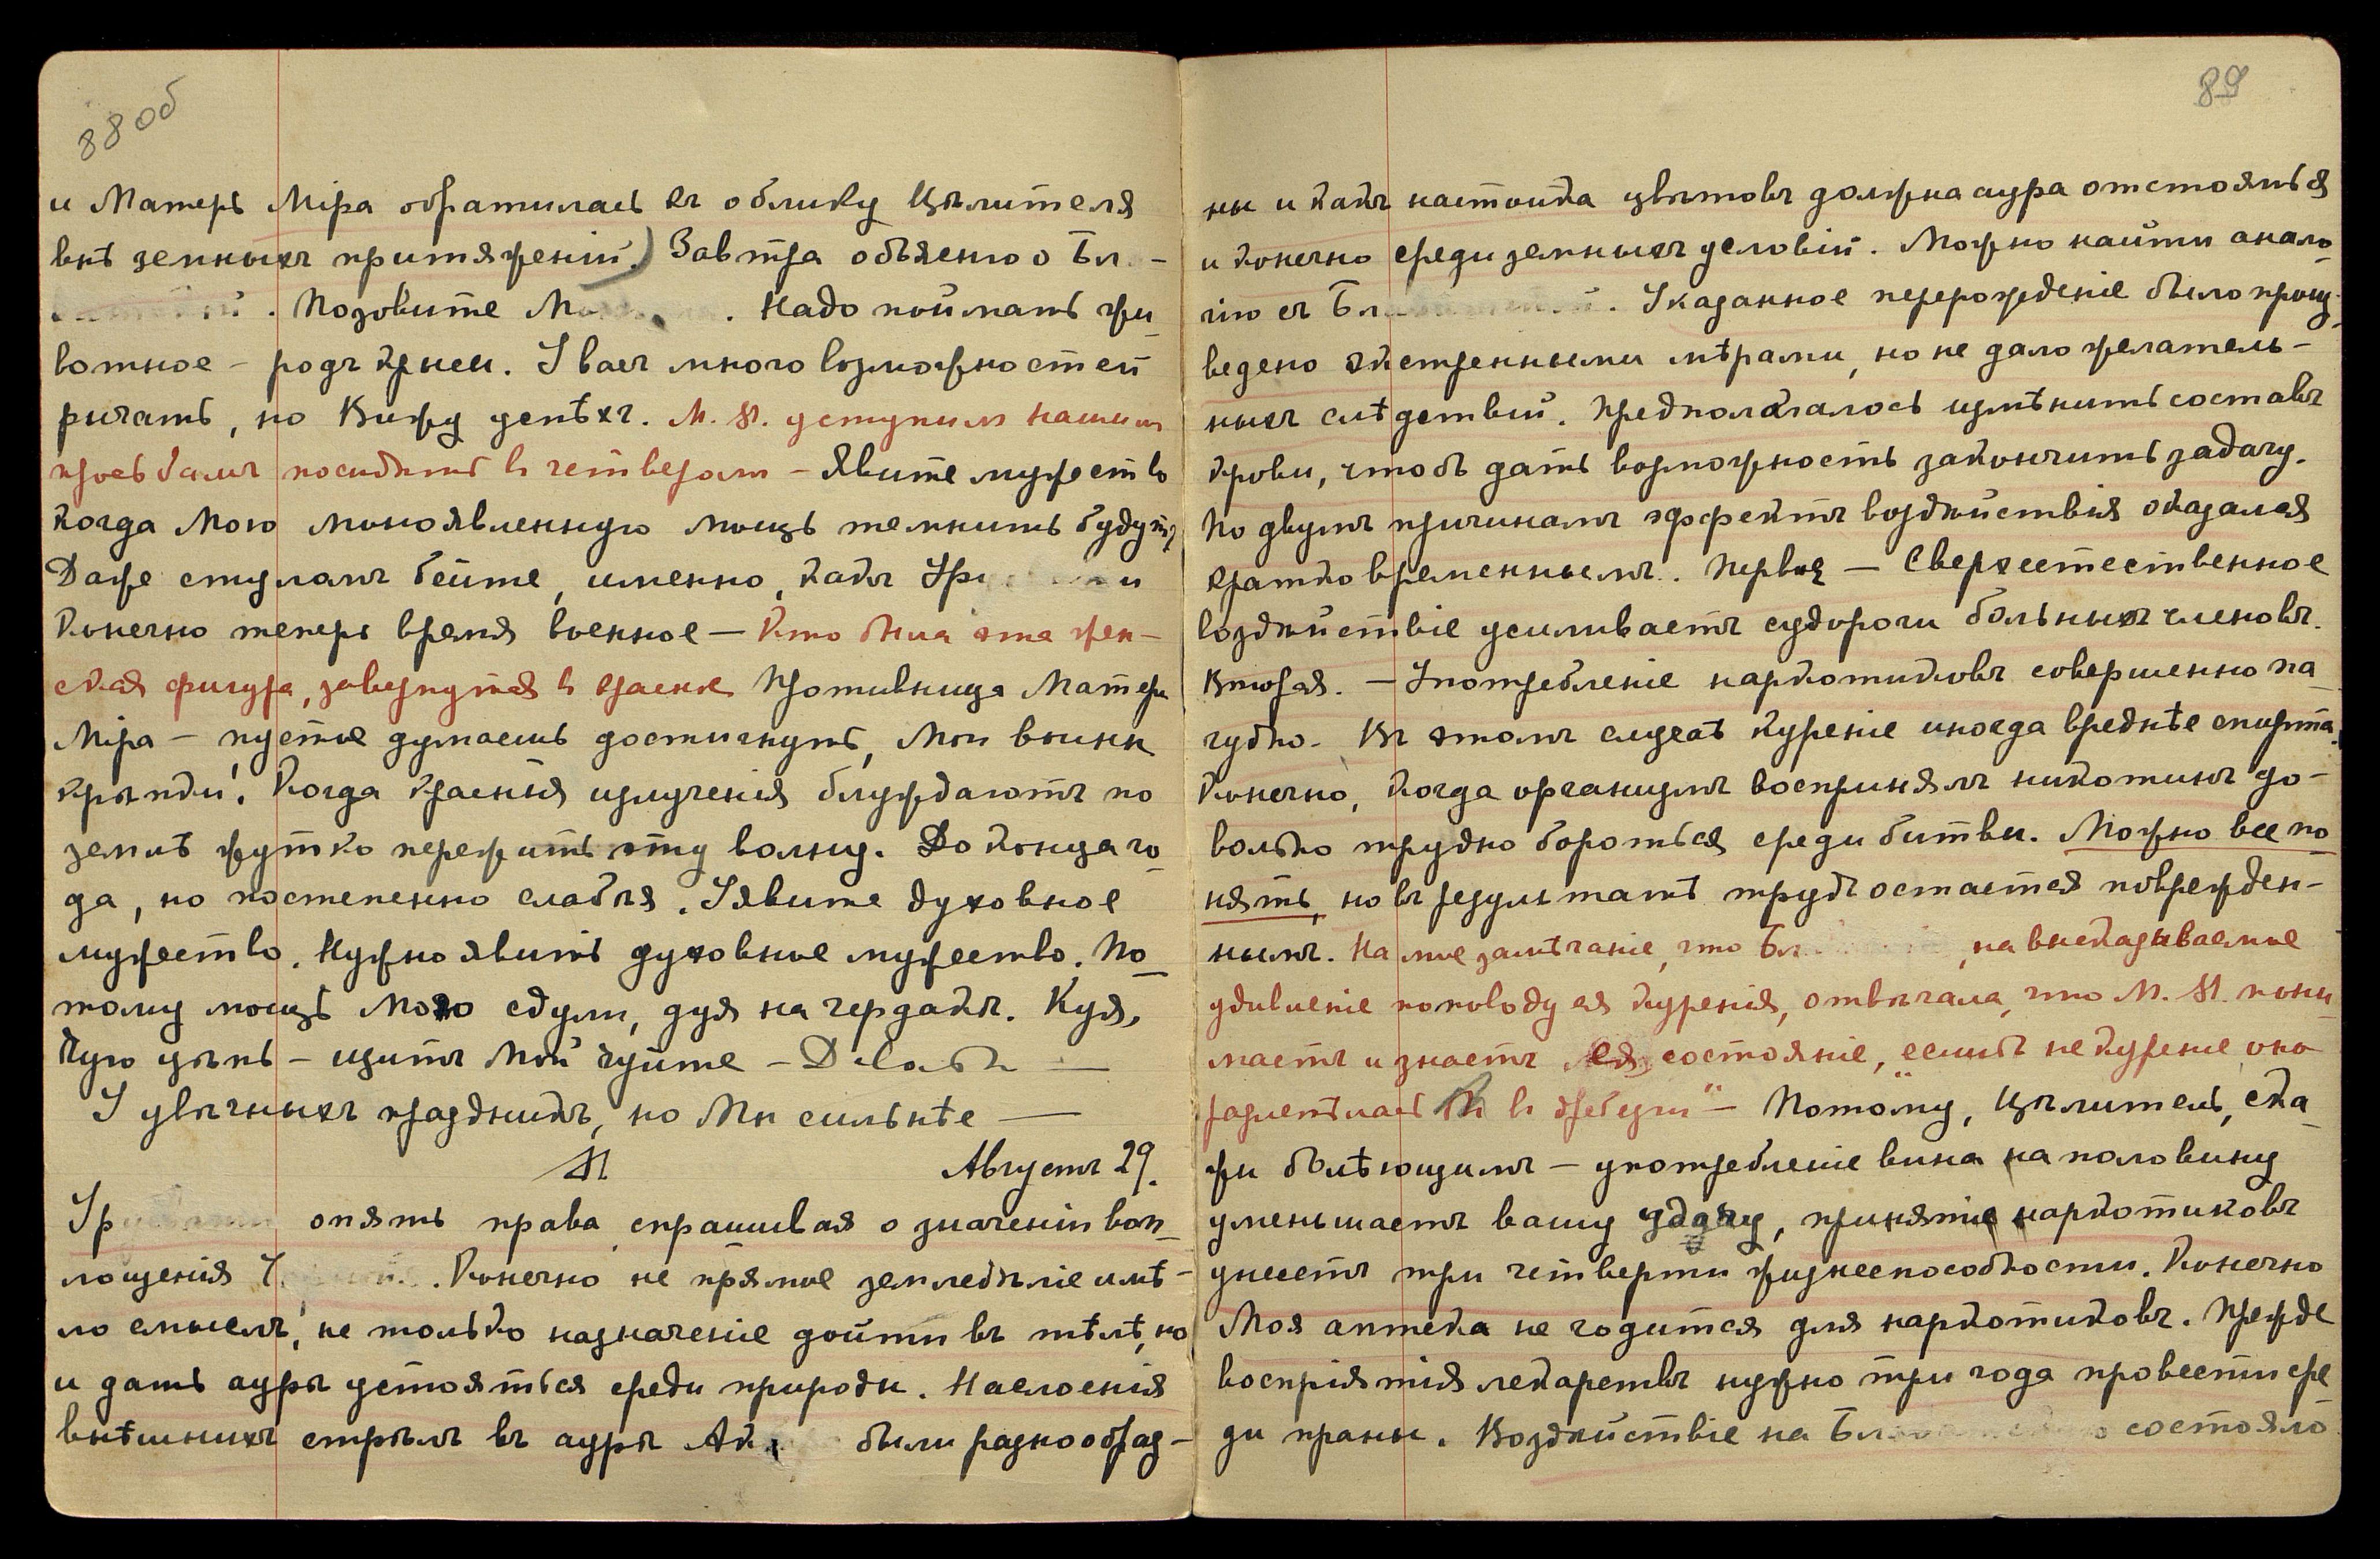 88 об
и Матерь Міра обратилась къ облику Цѣлителя
внѣ земныхъ притяженій.) Завтра объясню о Бл -
. Позовите М . Надо поймать жи_
вотное - родъ крысы. У васъ много возможностей
рычать, но Вижу успѣхъ. М. М. уступил нашим
просьбамъ посидѣть в четвергом - Явите мужество
когда Мою моноявленную мощь темнить будутъ
Даже стулами бейте, именно, какъ Ур и
Конечно теперь время военное — Кто была эта жен-
ская фигура, завернутая в красное Противница Матери
Міра - пустые думаешь достигнуть, Мои воины
крѣпки! Когда красныя излученія блуждаютъ по
землѣ жутко пережить эту волну. До конца го_
да, но постепенно слабѣя. Уявите духовное
мужество. Нужно явить духовное мужество. По_
тому мощь Мою сдули, дуя на чердакъ. Куя,
Кую цѣпь - щитъ Мой чуйте -
У увѣчныхъ праздникъ, но Мы сильнѣе —
Августъ 29.
Ур опять права спрашивая о значеніи воп_
лощенія . Конечно не прямое земледѣліе имѣ-
ло смыслъ, не только назначеніе дойти въ тѣлѣ, но
и дать аурѣ устояться среди природы. Наслоенія
внѣшнихъ стрѣлъ въ аурѣ Ак были разнообраз-
89
ны и какъ настойка цвѣтовъ должна аура отстояться
и конечно среди земныхъ условій. Можно найти анало_
гію съ Бл . Указанное перерожденіе было произ_
ведено экстренными мѣрами, но не дало желатель-
ныхъ слѣдствій. Предполагалось измѣнить составъ
крови, чтобъ дать возможность закончить задачу.
По двумъ причинамъ эффектъ воздѣйствія оказался
кратковременнымъ. Первая — Сверхестественное
воздѣйствіе усиливаетъ судороги больныхъ членовъ.
Вторая. — Употребленіе наркотиковъ совершенно па_
губно. Въ этомъ случаѣ куреніе иногда вреднѣе спирта.
Конечно, когда организмъ воспринялъ никотинъ до-
вольно трудно бороться среди битвы. Можно все по_
нять, но въ результатѣ трудъ остается поврежден-
нымъ. На мое замѣчаніе, что Бл , на высказываемое
удивленіе поповоду ея куренія, отвѣчала, что М. М. пони_
маетъ и знаетъ ея состояніе, еслибъ не куреніе, она
разлетѣлась в дребезги" — Потому, Цѣлитель, ска_
жи болѣющимъ — употребленіе вина на половину
уменьшаетъ вашу удачу, принятіе наркотиковъ
унесетъ три четверти жизнеспособности. Конечно
Моя аптека не годится для наркотиковъ. Прежде
воспріятія лекарствъ нужно три года провести сре_
ди праны. Воздѣйствіе на Бл состояло